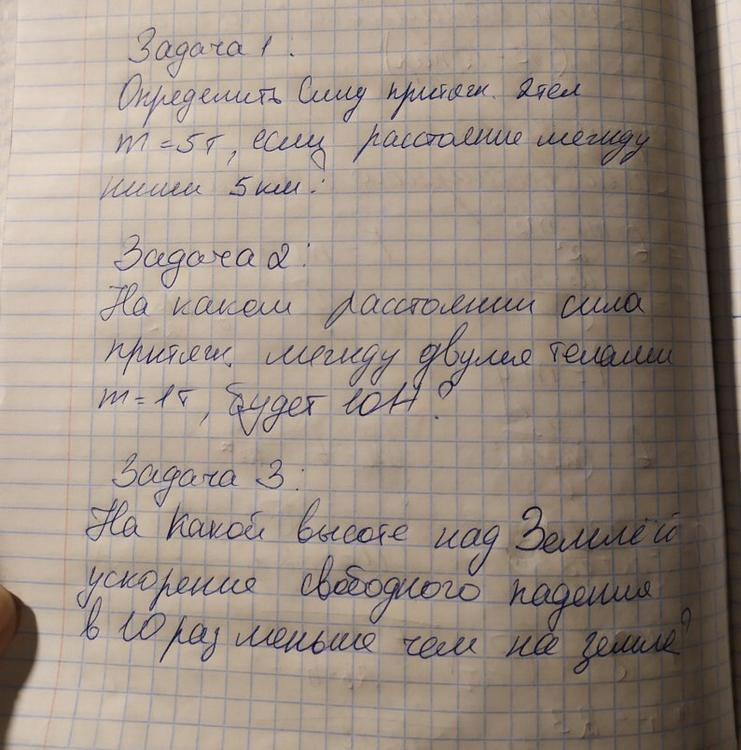 Задача 1:
Определить силу притяж. 2 тел
m = 5т, если расстояние между
ними 5 км?
Задача 2:
На каком расстоянии сила
притяж. между двумя телами
m = 1т, будет 10Н?
Задача 3:
На какой высоте над Землёй
ускорение свободного падения
в 10 раз меньше чем на земле?